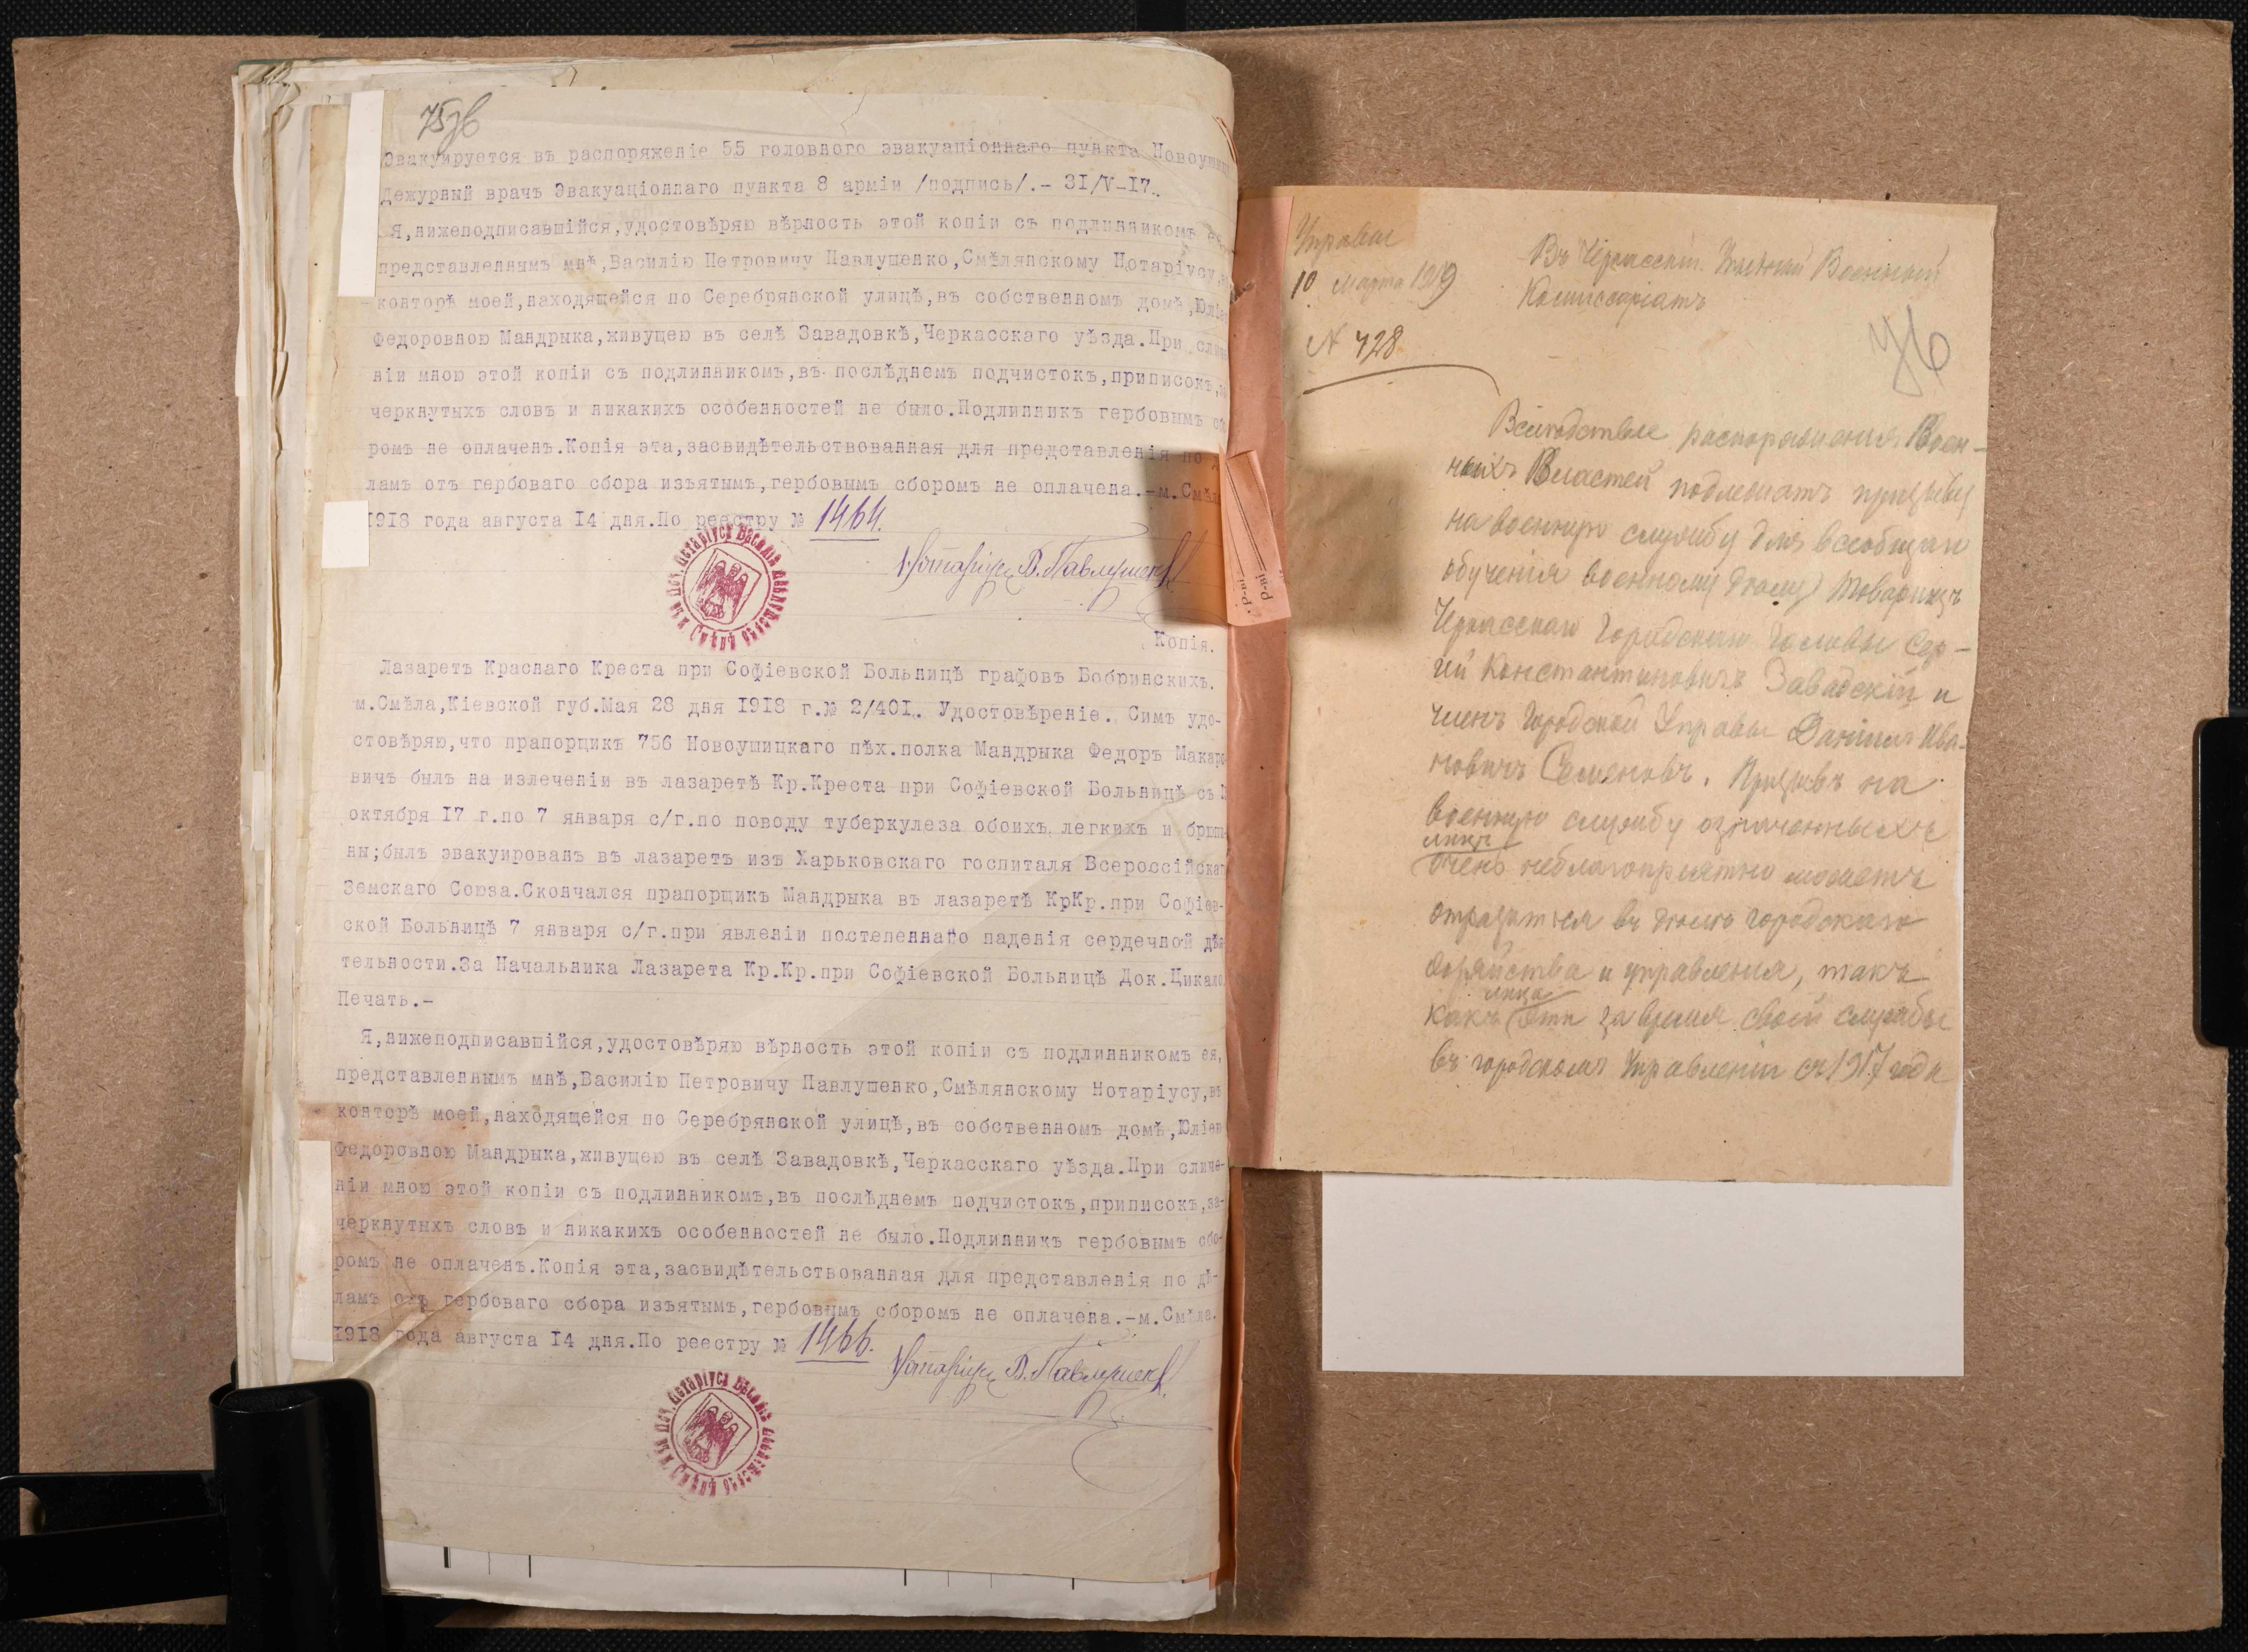 75зв
Эвакуируется въ распоряженіе 55 головного эвакуаціоннаго пункта Новоушиц
Дежурный врачъ Эвакуаціоннаго пункта 8 арміи /подпись/.- 31/V-17.
Я,нижеподписавшійся,удостовѣряю вѣрность этой копіи съ подлинникомъ
представленнымъ мнѣ,Василію Петровичу Павлушенко,Смѣлянскому Нотаріусу,
конторѣ моей,находящейся по Серебрянской улицѣ,въ собственномъ домѣ,Юліе
Федоровною Мандрыка,живущею въ селѣ Завадовкѣ,Черкасскаго уѣзда.При сличе
ніи мною этой копіи съ подлинникомъ,въ послѣднемъ подчистокъ,приписокъ,за
черкнутыхъ словъ и никакихъ особенностей не было.Подлинникъ гербовымъ сб
ромъ не оплаченъ.Копія эта,засвидѣтельствованная для представленія по д
ламъ отъ гербоваго сбора изъятымъ,гербовымъ сборомъ не оплачена.-м.Смѣла
1918 года августа 14 дня.По реестру № 1464.
Нотаріусъ В.Павлушенко
Копія.
Лазаретъ Краснаго Креста при Софіевской Больницѣ графовъ Бобринскихъ.
м.Смѣла,Кіевской губ.Мая 28 дня 1918 г.№ 2/401. Удостовѣреніе. Симъ удо-
стовѣряю,что прапорщикъ 756 Новоушицкаго пѣх.полка Мандрыка Федоръ Макаро
вичъ былъ на излеченіи въ лазаретѣ Кр.Креста при Софіевской Больницѣ съ
октября 17 г.по 7 января с/г.по поводу туберкулеза обоихъ легкихъ и брюши
ны;былъ эвакуированъ въ лазаретъ изъ Харьковскаго госпиталя Всероссійскаг
Земскаго Союза.Скончался прапорщикъ Мандрыка въ лазаретѣ КрКр.при Софіев-
ской Больницѣ 7 января с/г.при явленіи постепеннаго паденія сердечной дѣя
тельности.За Начальника Лазарета Кр.Кр.при Софіевской Больницѣ Док.Цикало
Печать.-
Я,нижеподписавшійся,удостовѣряю вѣрность этой копіи съ подлинникомъ ея,
представленнымъ мнѣ,Василію Петровичу Павлушенко,Смѣлянскому Нотаріусу,въ
конторѣ моей,находящейся по Серебрянской улицѣ,въ собственномъ домѣ,Юліею
Федоровною Мандрыка,живущею въ селѣ Завадовкѣ,Черкасскаго уѣзда.При сличе-
ніи мною этой копіи съ подлинникомъ,въ послѣднемъ подчистокъ,приписокъ,за-
черкнутыхъ словъ и никакихъ особенностей не было.Подлинникъ гербовымъ сбо-
ромъ не оплаченъ.Копія эта,засвидѣтельствованная для представленія по дѣ-
ламъ отъ гербоваго сбора изъятымъ,гербовымъ сборомъ не оплачена.-м.Смѣла.
1918 года августа 14 дня.По реестру № 1466.
Нотаріусъ В.Павлушенко
Управы
10 марта 1919
№ 428
Въ Черкасскій Уѣздный Военный
Комиссаріатъ
76
Вслѣдствіе распоряженія Воен-
ныхъ Властей подлежатъ призыву
на военную службу для всеобщаго
обученія военному дѣлу Товарищъ
Черкасскаго Городского Головы Сер-
гій Константиновичъ Завадскій и
членъ Городской Управы Даніилъ Ива-
новичъ Семеновъ. Призывъ на
военную службу означенныхъ
лицъ
очень неблагопріятно можетъ
отразиться въ дѣлѣ городского
хозяйства и управленія, такъ
лица
какъ эти за время своей службы
въ городскомъ Управленіи съ 1917 года